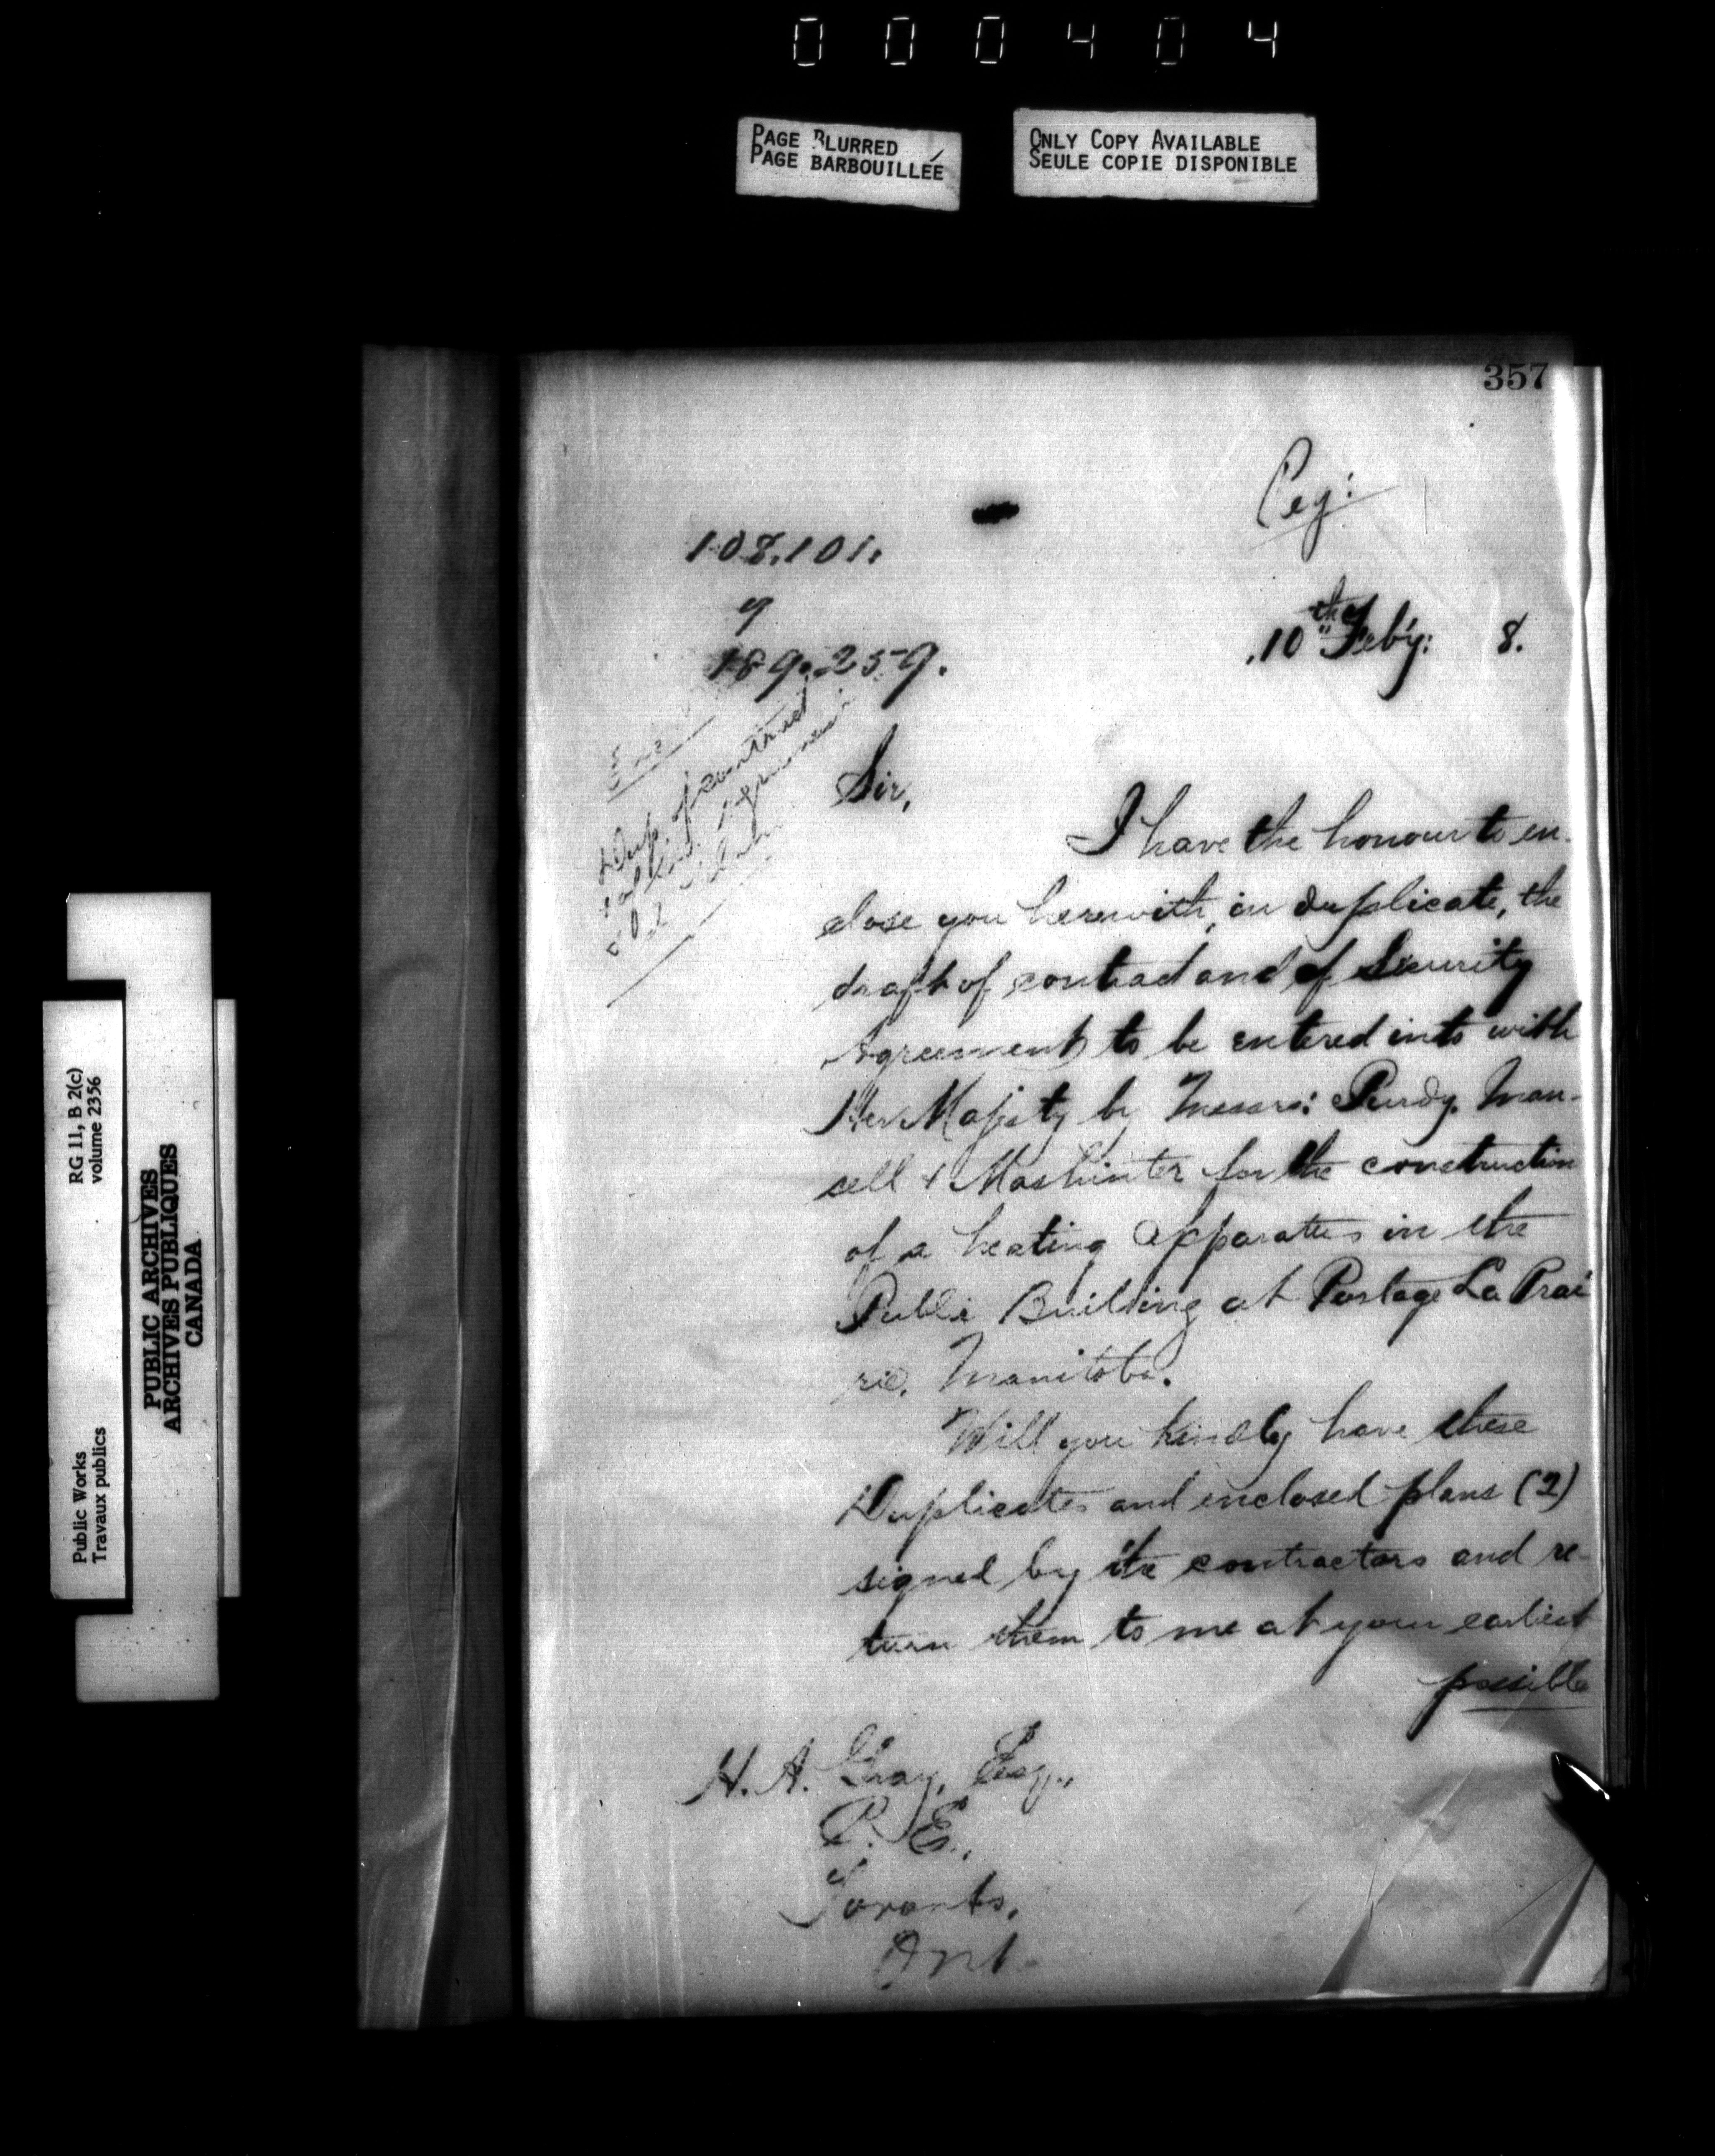 000404
PAGE BLURRED
PAGE BARBOUILLÉE
ONLY COPY AVAILABLE
SEULE COPIE DISPONIBLE
357
Reg:
108.101.
9
189.259.
10th Feb'y: 8.
Enc
Dup. of contract
agreement
Sir,
I have the honour to en-
close you herewith, in duplicate, the
draft of contract and of Security
Agreement to be entered into with
Her Majesty by Messrs: Purdy, Man-
cell & Mashinter for the construction
of a heating apparatus in the
Public Building at Portage La Prai
rie, Manitoba.
Will you kindly have these
Duplicates and enclosed plans (2)
signed by the contractors and re-
turn them to me at your earliest
possible
H. A. Gray, Esq.,
Toronto,
Ont.
RG 11, B 2(c)
volume 2356
Public Works
Travaux publics
PUBLIC ARCHIVES
ARCHIVES PUBLIQUES
CANADA